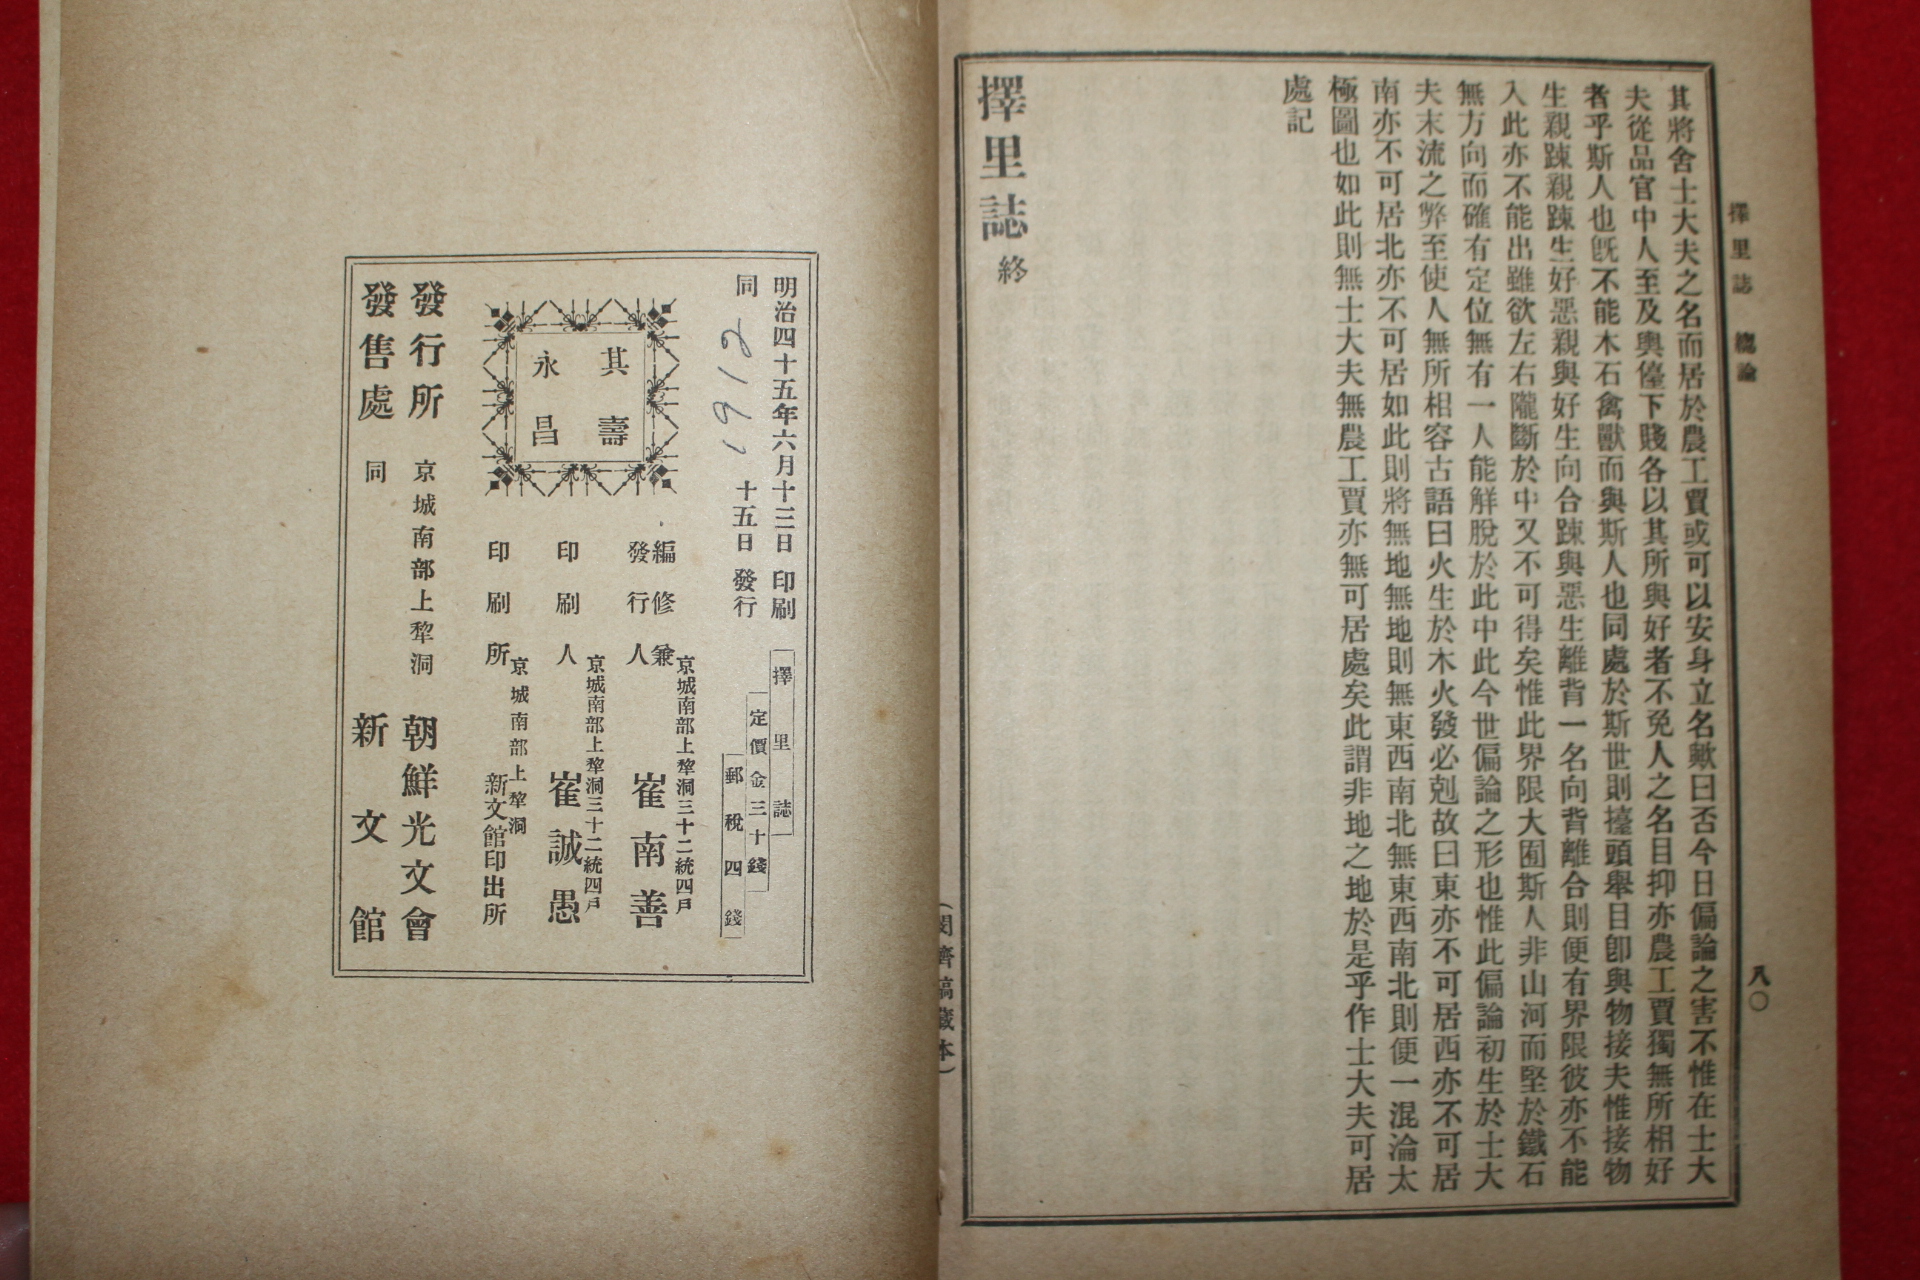 擇里誌 總論
八〇
其將舍士大夫之名而居於農工賈或可以安身立名歟曰否今日偏論之害不惟在士大
夫從品官中人至及輿儓下賤各以其所與好者不免人之名目抑亦農工賈獨無所相好
者乎斯人也旣不能木石禽獸而與斯人也同處於斯世則擡頭舉目卽與物接夫惟接物
生親踈親踈生好惡親與好生向合踈與惡生離背一名向背離合則便有界限彼亦不能
入此亦不能出雖欲左右隴斷於中又不可得矣惟此界限大囿斯人非山河而堅於鐵石
無方向而確有定位無有一人能解脫於此中此今世偏論之形也惟此偏論初生於士大
夫末流之弊至使人無所相容古語曰火生於木火發必剋故曰東亦不可居西亦不可居
南亦不可居北亦不可居如此則將無地無地則無東西南北無東西南北則便一混淪太
極圖也如此則無士大夫無農工賈亦無可居處矣此謂非地之地於是乎作士大夫可居
處記
擇里誌 終
濟稿藏本)
明治四十五年六月十三日 印刷
同 十五日 發行
1912
擇里誌
定價金三十錢
郵稅四錢
其壽
永昌
編修兼
發行人
京城南部上犂洞三十二統四戶
崔南善
印刷人
京城南部上犂洞三十二統四戶
崔誠愚
印刷所
京城南部上犂洞
新文館印出所
發行所 京城南部上犂洞 朝鮮光文會
發售處 同 新文館